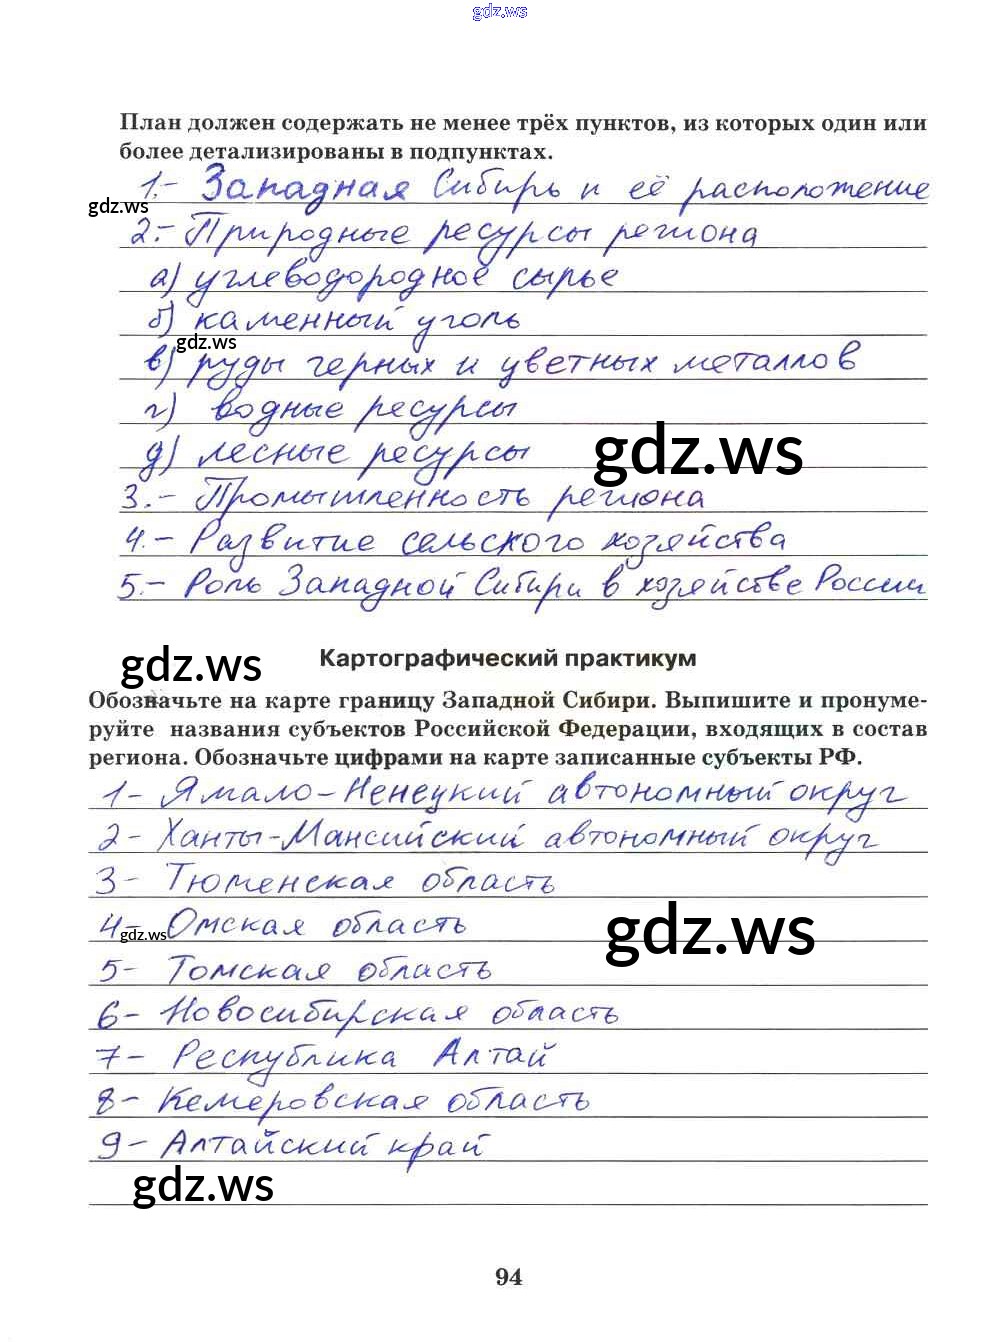 gdz.ws
План должен содержать не менее трёх пунктов, из которых один или
более детализированы в подпунктах.
1.- Западная Сибирь и её расположение
gdz.ws
2.- Природные ресурсы региона
а) углеводородное сырье
б) каменный уголь
gdz.ws
в) руды черных и цветных металлов
г) водные ресурсы
gdz.ws
д) лесные ресурсы
3.- Промышленность региона
4.- Развитие сельского хозяйства
5.- Роль Западной Сибири в хозяйстве России
gdz.ws
Картографический практикум
Обозначьте на карте границу Западной Сибири. Выпишите и пронуме-
руйте названия субъектов Российской Федерации, входящих в состав
региона. Обозначьте цифрами на карте записанные субъекты РФ.
1- Ямало-Ненецкий автономный округ
2- Ханты-Мансийский автономный округ
3- Тюменская область
4- Омская область
gdz.ws
gdz.ws
5- Томская область
6- Новосибирская область
7- Республика Алтай
8- Кемеровская область
9- Алтайский край
gdz.ws
94